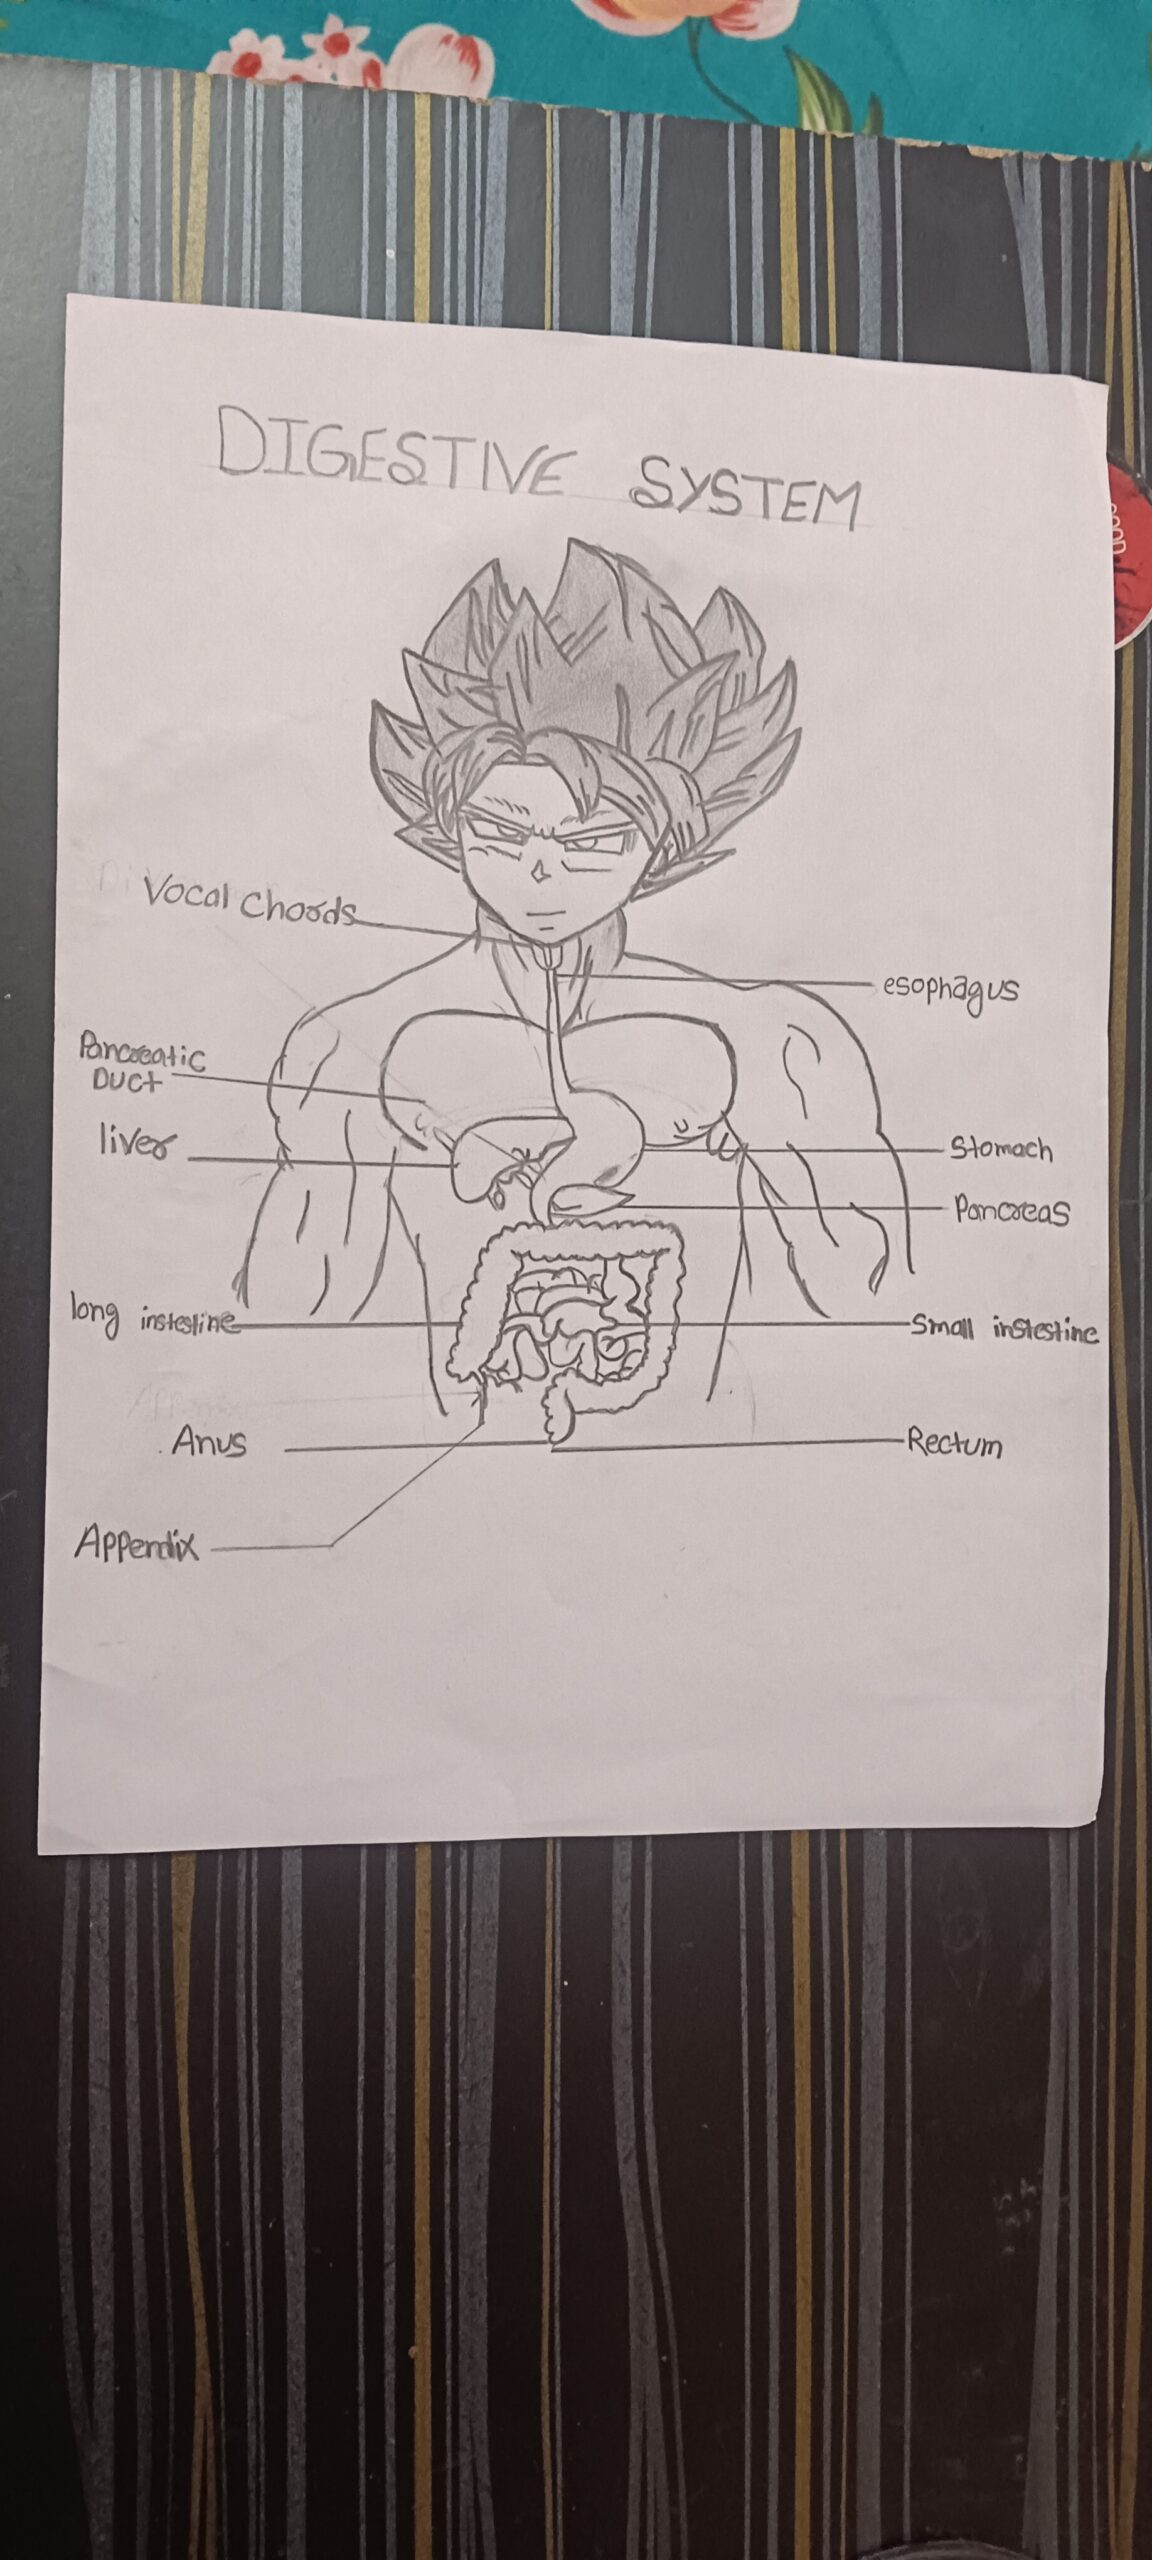 DIGESTIVE SYSTEM
Vocal Chords
esophagus
Pancreatic
Duct
liver
Stomach
Pancreas
long instestine
Small instestine
Anus
Rectum
Appendix